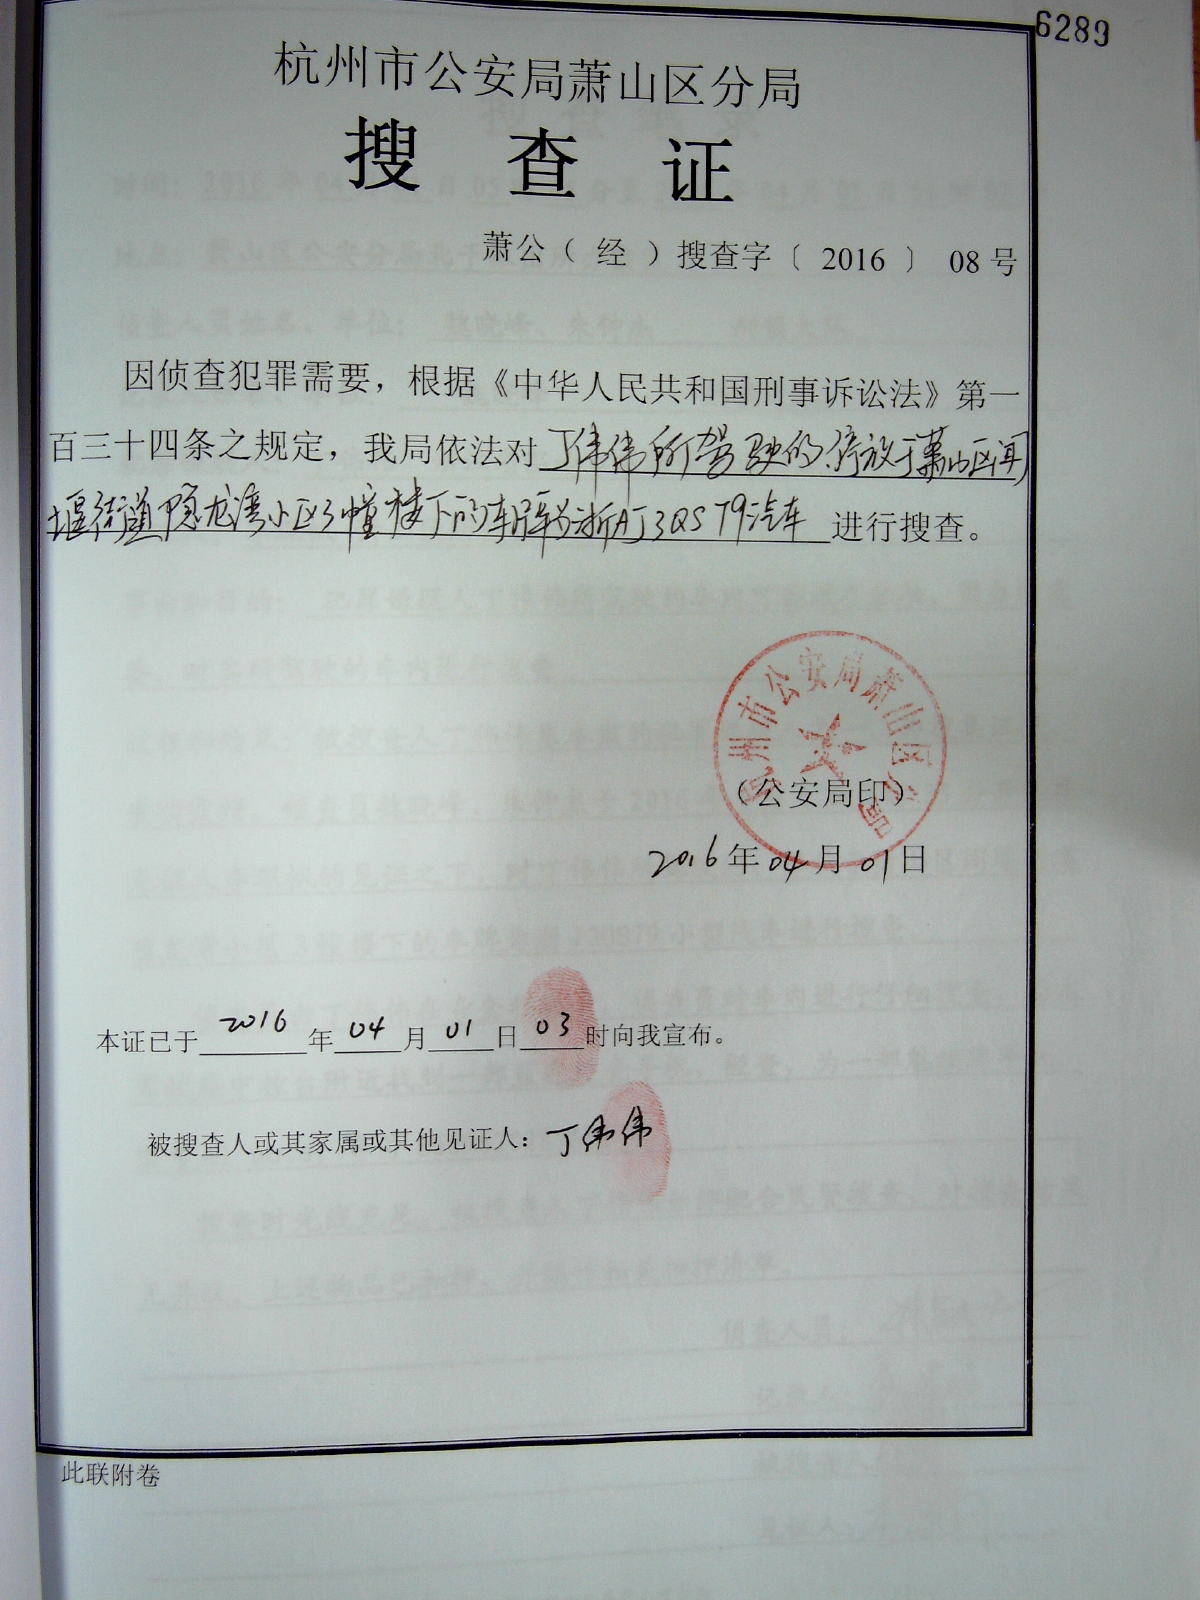 6289
杭州市公安局萧山区分局
搜 查 证
萧公（ 经 ）搜查字〔 2016 〕 08 号
因侦查犯罪需要，根据《中华人民共和国刑事诉讼法》第一
百三十四条之规定，我局依法对丁伟伟所驾驶的停放于萧山区闻
堰街道隐龙湾小区3幢楼下的车牌为浙AJ3QS79汽车进行搜查。
杭州市公安局萧山区分局
（公安局印）
2016年04月01日
本证已于2016年04月01日03时向我宣布。
被搜查人或其家属或其他见证人：丁伟伟
此联附卷